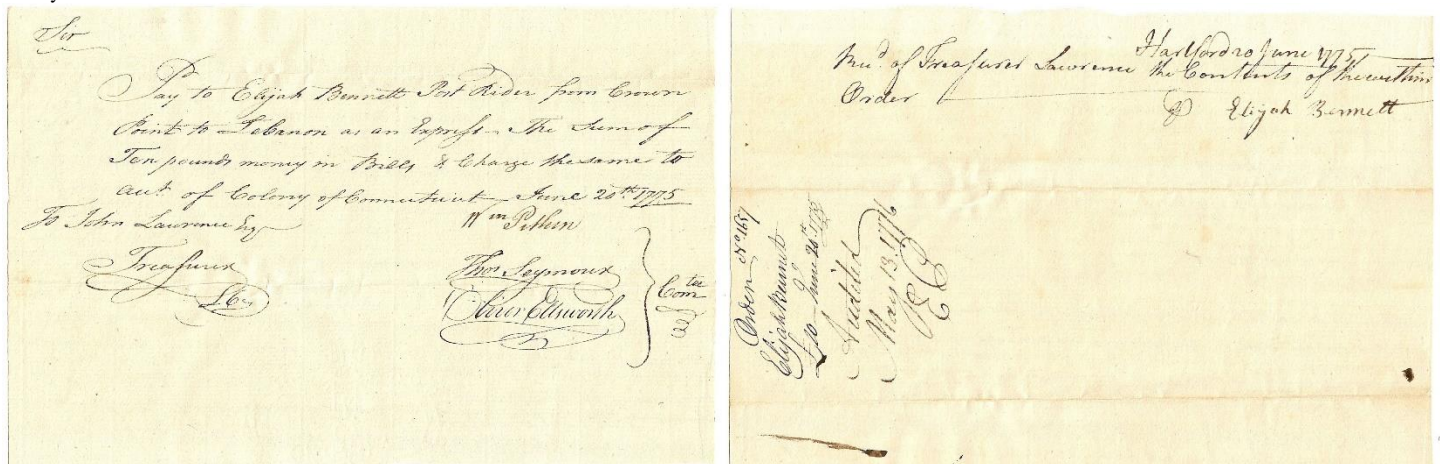 Sir
Pay to Elijah Bennett Post Rider from Crown
Point to Lebanon as an Express The Sum of
Ten pounds money in Bills & Charge the same to
Acct of Colony of Connecticut June 20th 1775
To John Lawrence Esqr
Treasurer
Wm Pitkin
Thos Seymour
Oliver Ellsworth
Comtee
Hartford 20 June 1775
Recd of Treasurer Lawrence the Contents of the within
Order
Elijah Bennett
Order No 1657
Elijah Bennett
£10 June 20th 1775
Audited
May 13 1776